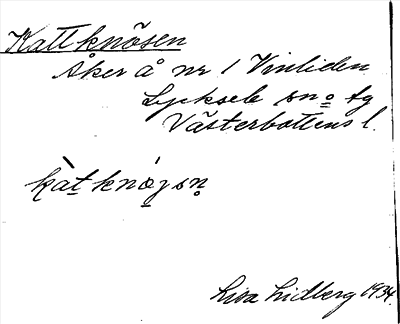 Kattknösen
Åker å nr 1 Vinliden
Lycksele sn o tg
Västerbottens l.
kàt knø̀y sn̥
Lisa Lidberg 1934.